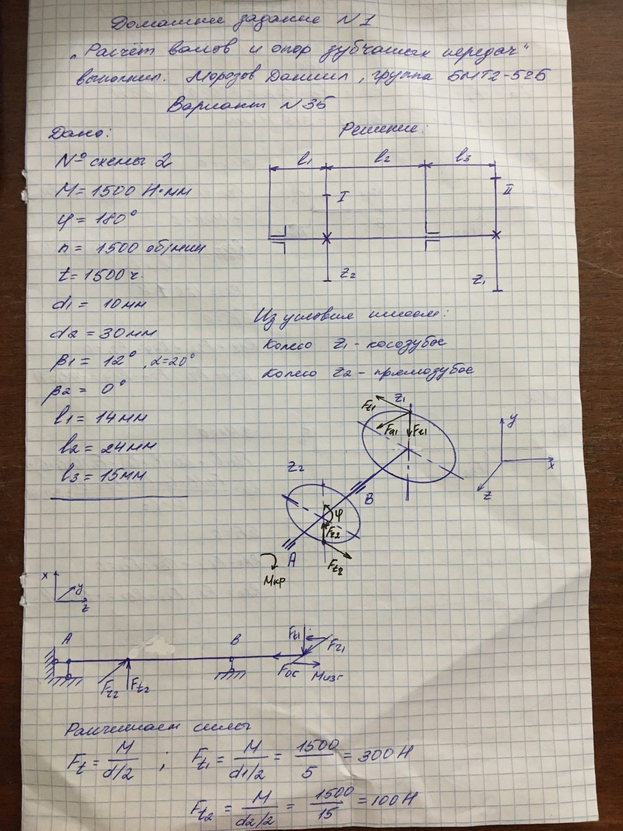 Домашнее задание N1
„Расчёт валов и опор зубчатых передач"
выполнил. Морозов Даниил, группа БМТ2-52Б
Вариант N35
Дано:
Решение:
Nº схемы 2
M = 1500 Н·мм
φ = 180°
n = 1500 об/мин
t = 1500 ч.
d1 = 10 мм
d2 = 30 мм
β1 = 12°, α=20°
β2 = 0°
l1 = 14 мм
l2 = 24 мм
l3 = 15 мм
l1 l2 l3
I II
z2 z1
Из условия имеем:
Колесо z1 - косозубое
Колесо z2 - прямозубое
z1
Ft1
Fa1 Fr1
y
x
z
z2
B
φ
Fr2
Ft2
A
Mкр
x y
z
A B
Ft1
Fr1
Fос Mизг
Fr2 Ft2
Рассчитаем силы
Ft = M/d/2 ; Ft1 = M/d1/2 = 1500/5 = 300 Н
Ft2 = M/d2/2 = 1500/15 = 100 Н